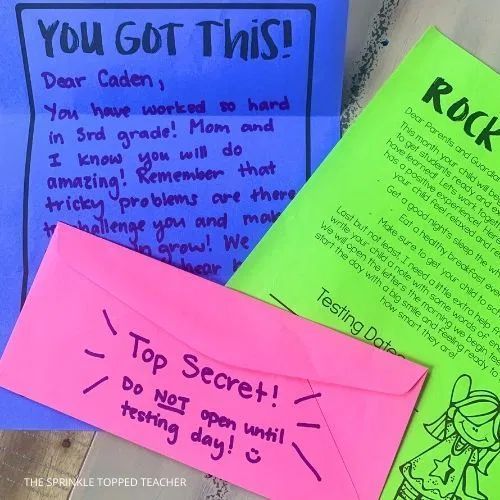 YOU GOT THIS!
Dear Caden,
You have worked so hard
in 3rd grade! Mom and
I know you will do
amazing! Remember that
tricky problems are there
to challenge you and
grow! We
hear
ROCK
Dear Parents and
This month your child will
to get students ready and
have learned! Let's work
has a positive experience!
your child feel relaxed and
Get a good night's sleep the
Eat a healthy breakfast
Make sure to get your child to
Last but not least, I need a little extra help
write your child a note with some words of
We will open the letters the morning we begin
start the day with a big smile and feeling ready to
how smart they are!
Testing Dates
Top Secret!
Do NOT open until
testing day!
THE SPRINKLE TOPPED TEACHER